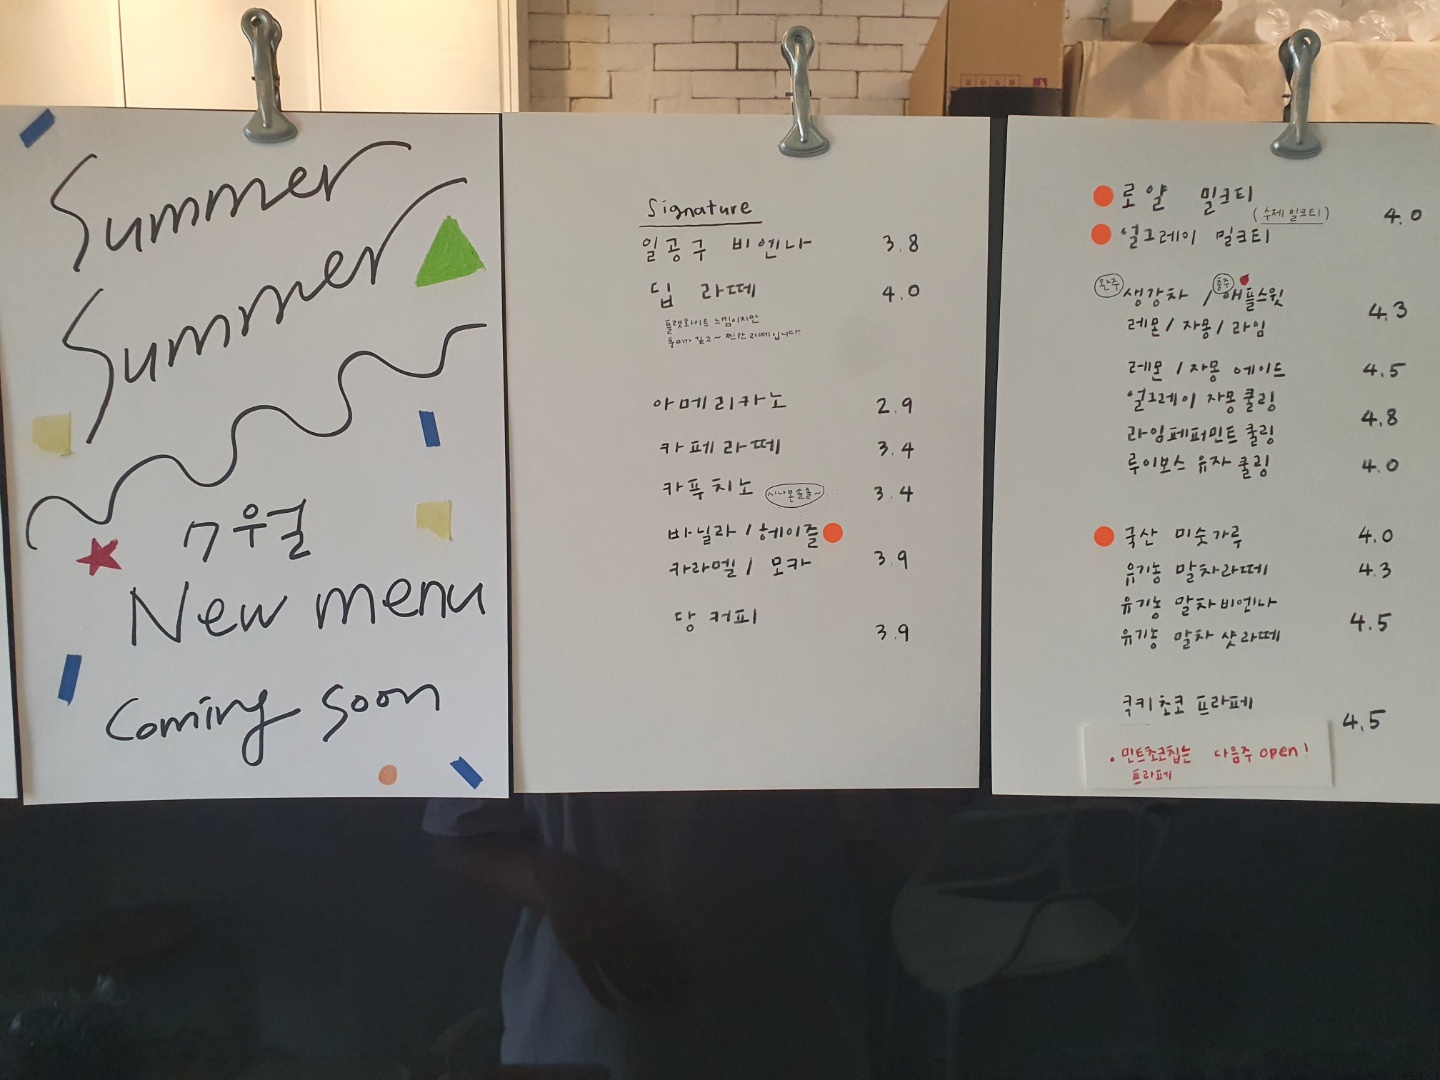 Summer
Summer
7월
New menu
Coming soon
Signature
일공구 비엔나 3.8
딥 라떼 4.0
플랫화이트 느낌이지만
풍미가 깊고~ 찐한 라떼입니다
아메리카노 2.9
카페라떼 3.4
카푸치노 시나몬솔솔~ 3.4
바닐라/헤이즐
카라멜/모카 3.9
당커피 3.9
로얄 밀크티
(수제밀크티) 4.0
얼그레이 밀크티
완주 생강차 / 충주 애플스윗
레몬/자몽/라임 4.3
레몬/자몽 에이드 4.5
얼그레이 자몽 쿨링
라임페퍼민트 쿨링 4.8
루이보스 유자 쿨링 4.0
국산 미숫가루 4.0
유기농 말차라떼 4.3
유기농 말차비엔나
유기농 말차 샷라떼 4.5
쿠키초코 프라페 4.5
• 민트초코칩는 다음주 open!
프라페